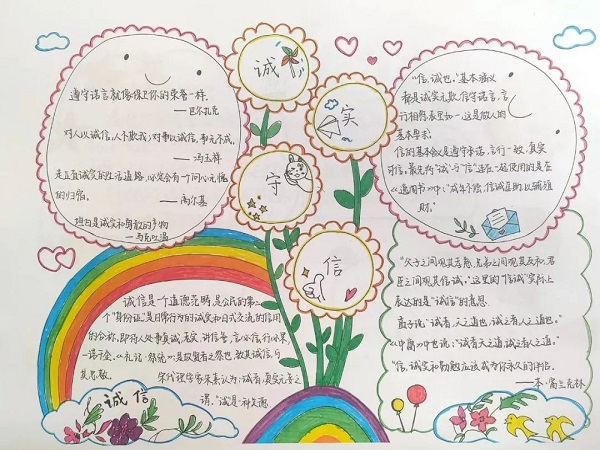 遵守诺言就像保卫你的荣誉一样。
——巴尔扎克
对人以诚信，人不欺我；对事以诚信，事无不成。
——冯玉祥
走正直诚实的生活道路，必定会有一个问心无愧
的归宿。
——高尔基
坦白是诚实和勇敢的产物
——马克吐温
诚
实
守
信
"信，诚也。"基本涵义
都是诚实无欺，信守诺言，言
行相符，表里如一，这是做人的
基本要求
信的基本含义是遵守承诺，言行一致，真实
可信，最先将"诚"与"信"连在一起使用的是
《逸周书》中："成年不偿，信诚匡助，以辅殖
财。"
诚信是一个道德范畴，是公民的第二
个"身份证"是日常行为的诚实和正式交流的信用
的合称，即待人处事真诚、老实、讲信誉，言必信，行必果，
一诺千金。《礼记·祭统》：是故贤者之祭也，致其诚信与
其忠敬。
宋代理学家朱熹认为：诚者，真实无妄之
谓。"诚是一种美德
诚信
"父子之间观其孝慈，兄弟之间观其友和，君
臣之间观其信诚"，这里的"信诚"实际上
表达的是"诚信"的意思
孟子说："诚者，天之道也，诚之者，人之道也。"
《中庸》中也说："诚者天之道，诚之者人之道。"
"信，诚实和勤勉应该成为你永久的伴侣。
——本·富兰克林